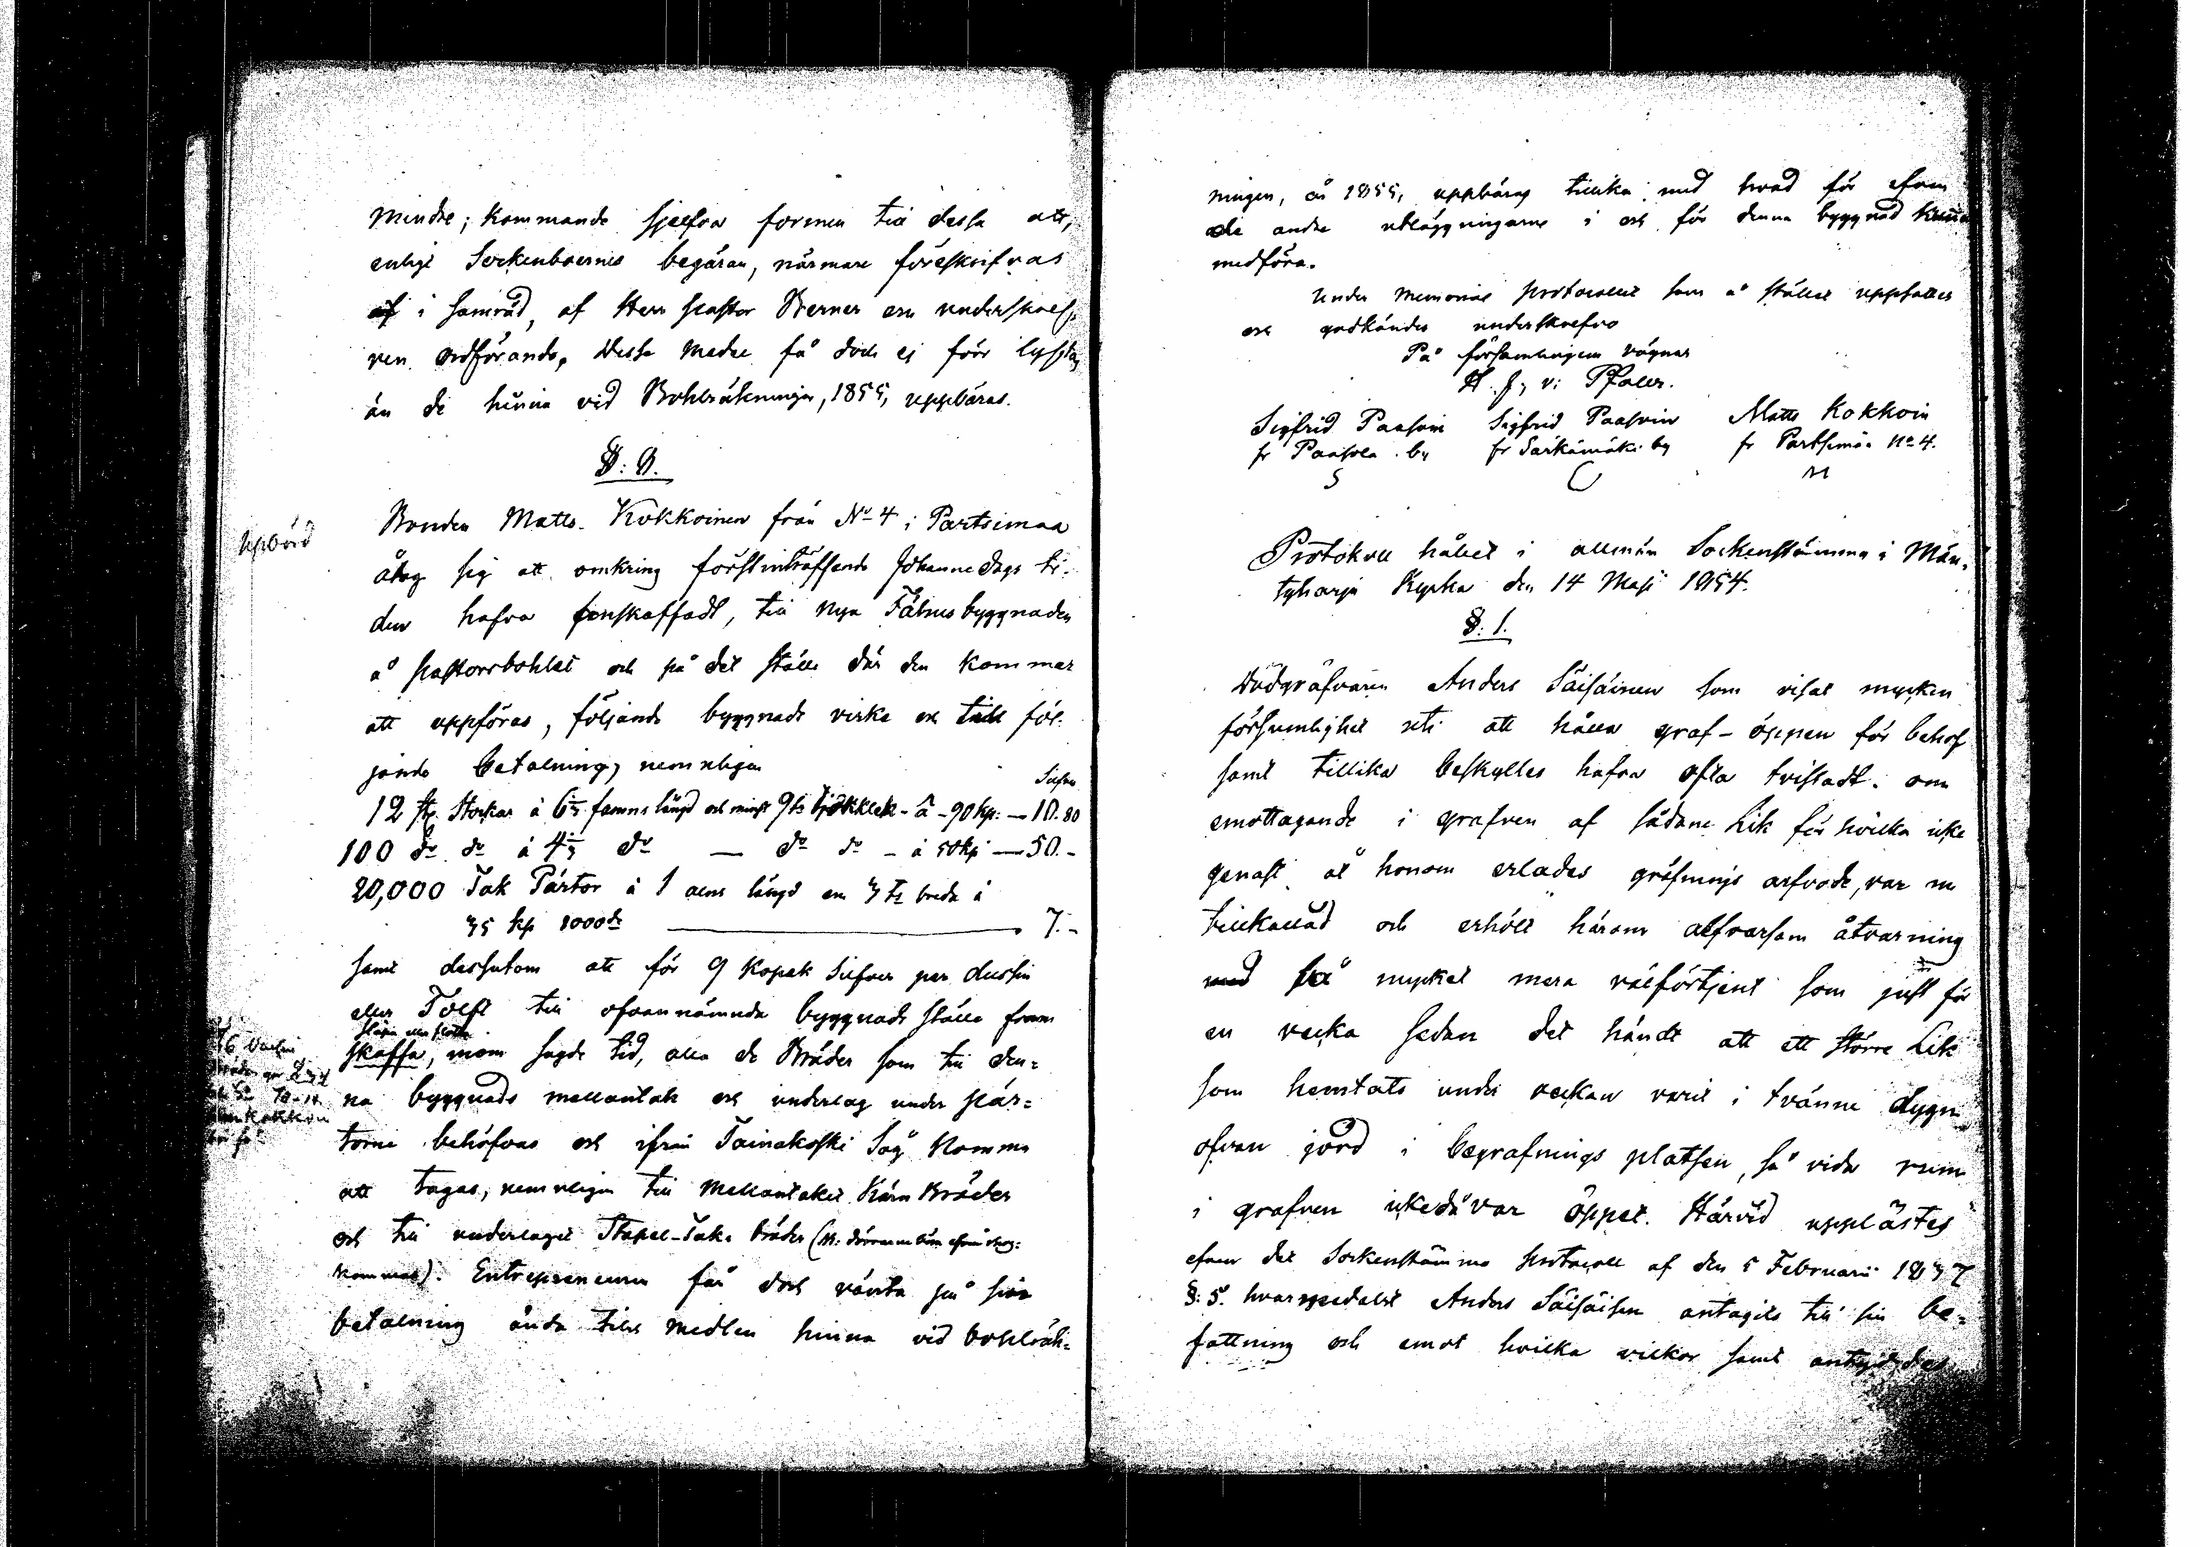 mindre; kommande sjelfva formen till dessa att,
enligt Sockenboernes begäran, närmare föreskrifvas
af i samråd, af Herr Pastor Berner och underskref-
ven ordförande, Dessa medel få dock ej förr lyftas
än de hinna vid Bohlräkningen, 1855, uppbäras.
§: 8.
Uppbörd
Bonden Matts Kokkoinen från No 4 i Partsimaa
åtog sig att omkring förstinträffande Johannedags ti-
den hafva framskaffadt, till nya Fähusbyggnaden
å Pastorsbohlet och på det ställe där den kommer
att uppföras, följande byggnads virke och till föl-
jande betalning, nemnligen
Silfver
12 st. Stockar à 6½ famns längd och minst 9 ts tjocklek - à - 90 kp: — 10.80
100 do do à 4½ do — do do - à 50 kp — 50.-
20,000 Tak Pärtor à 1 alns längd och 3 ts breda à
35 kp 1000de — 7.-
samt dessutom att för 9 kopek Silfver per dussin
eller Tolft till ofvannämnda byggnads ställe fram
släpa eller flotta
skaffa, inom sagde tid, alla de Bräder som till den=
na byggnads mellantak och underlag under Pär=
torne behöfvas och ifrån Tainakoski Såg komma
att tagas, nemnligen till Mellantaket Kärn Bräder
och till underlaget Stapel-Taks bräder
kommas). Entrepreneuren får dock vänta på sin
betalning ända tills medlen hinna vid bohlräk-
ningen, år 1855, uppbäras tillika med hvad för öfven
de andre utläggningarne i och för denna byggnad kunna
medföra.
Under Memorial Protocollet som å stället uppsattes
och godkändes underskrefvo
På församlingens vägnar
H. f. v: Pfaler.
Sigfrid Paasoin Sigfrid Paasoin Matts Kokkoin
fr Paasola by fr Särkämäki by fr Partsimaa No 4.
Protokoll hållet i allmän Sockenstämma i Män-
tyharju Kyrka den 14 Maji 1854.
§: 1.
Dödgräfvaren Anders Säisäinen som visat mycken
försumlighet uti att hålla graf-öppen för behof
samt tillika beskylles hafva ofta tvistadt om
emottagande i grafven af sådane Lik för hvilka icke
genast åt honom erlades gräfnings arfvode, var nu
tillkallad och erhöll härom alfvarsam åtvarning
med så mycket mera välförtjent som just för
en vecka sedan det händt att ett större Lik
som hemtats under veckan varit i tvänne dygn
ofvan jord i begrafnings platsen, så vida rum
i grafven icke då var öppet. Härvid upplästes
äfven det Sockenstämmo Protocoll af den 5 Februarii 1837
§: 5. hvarmedelst Anders Säisäisen antagits till sin be=
fattning och emot hvilka vilkor samt antyddes